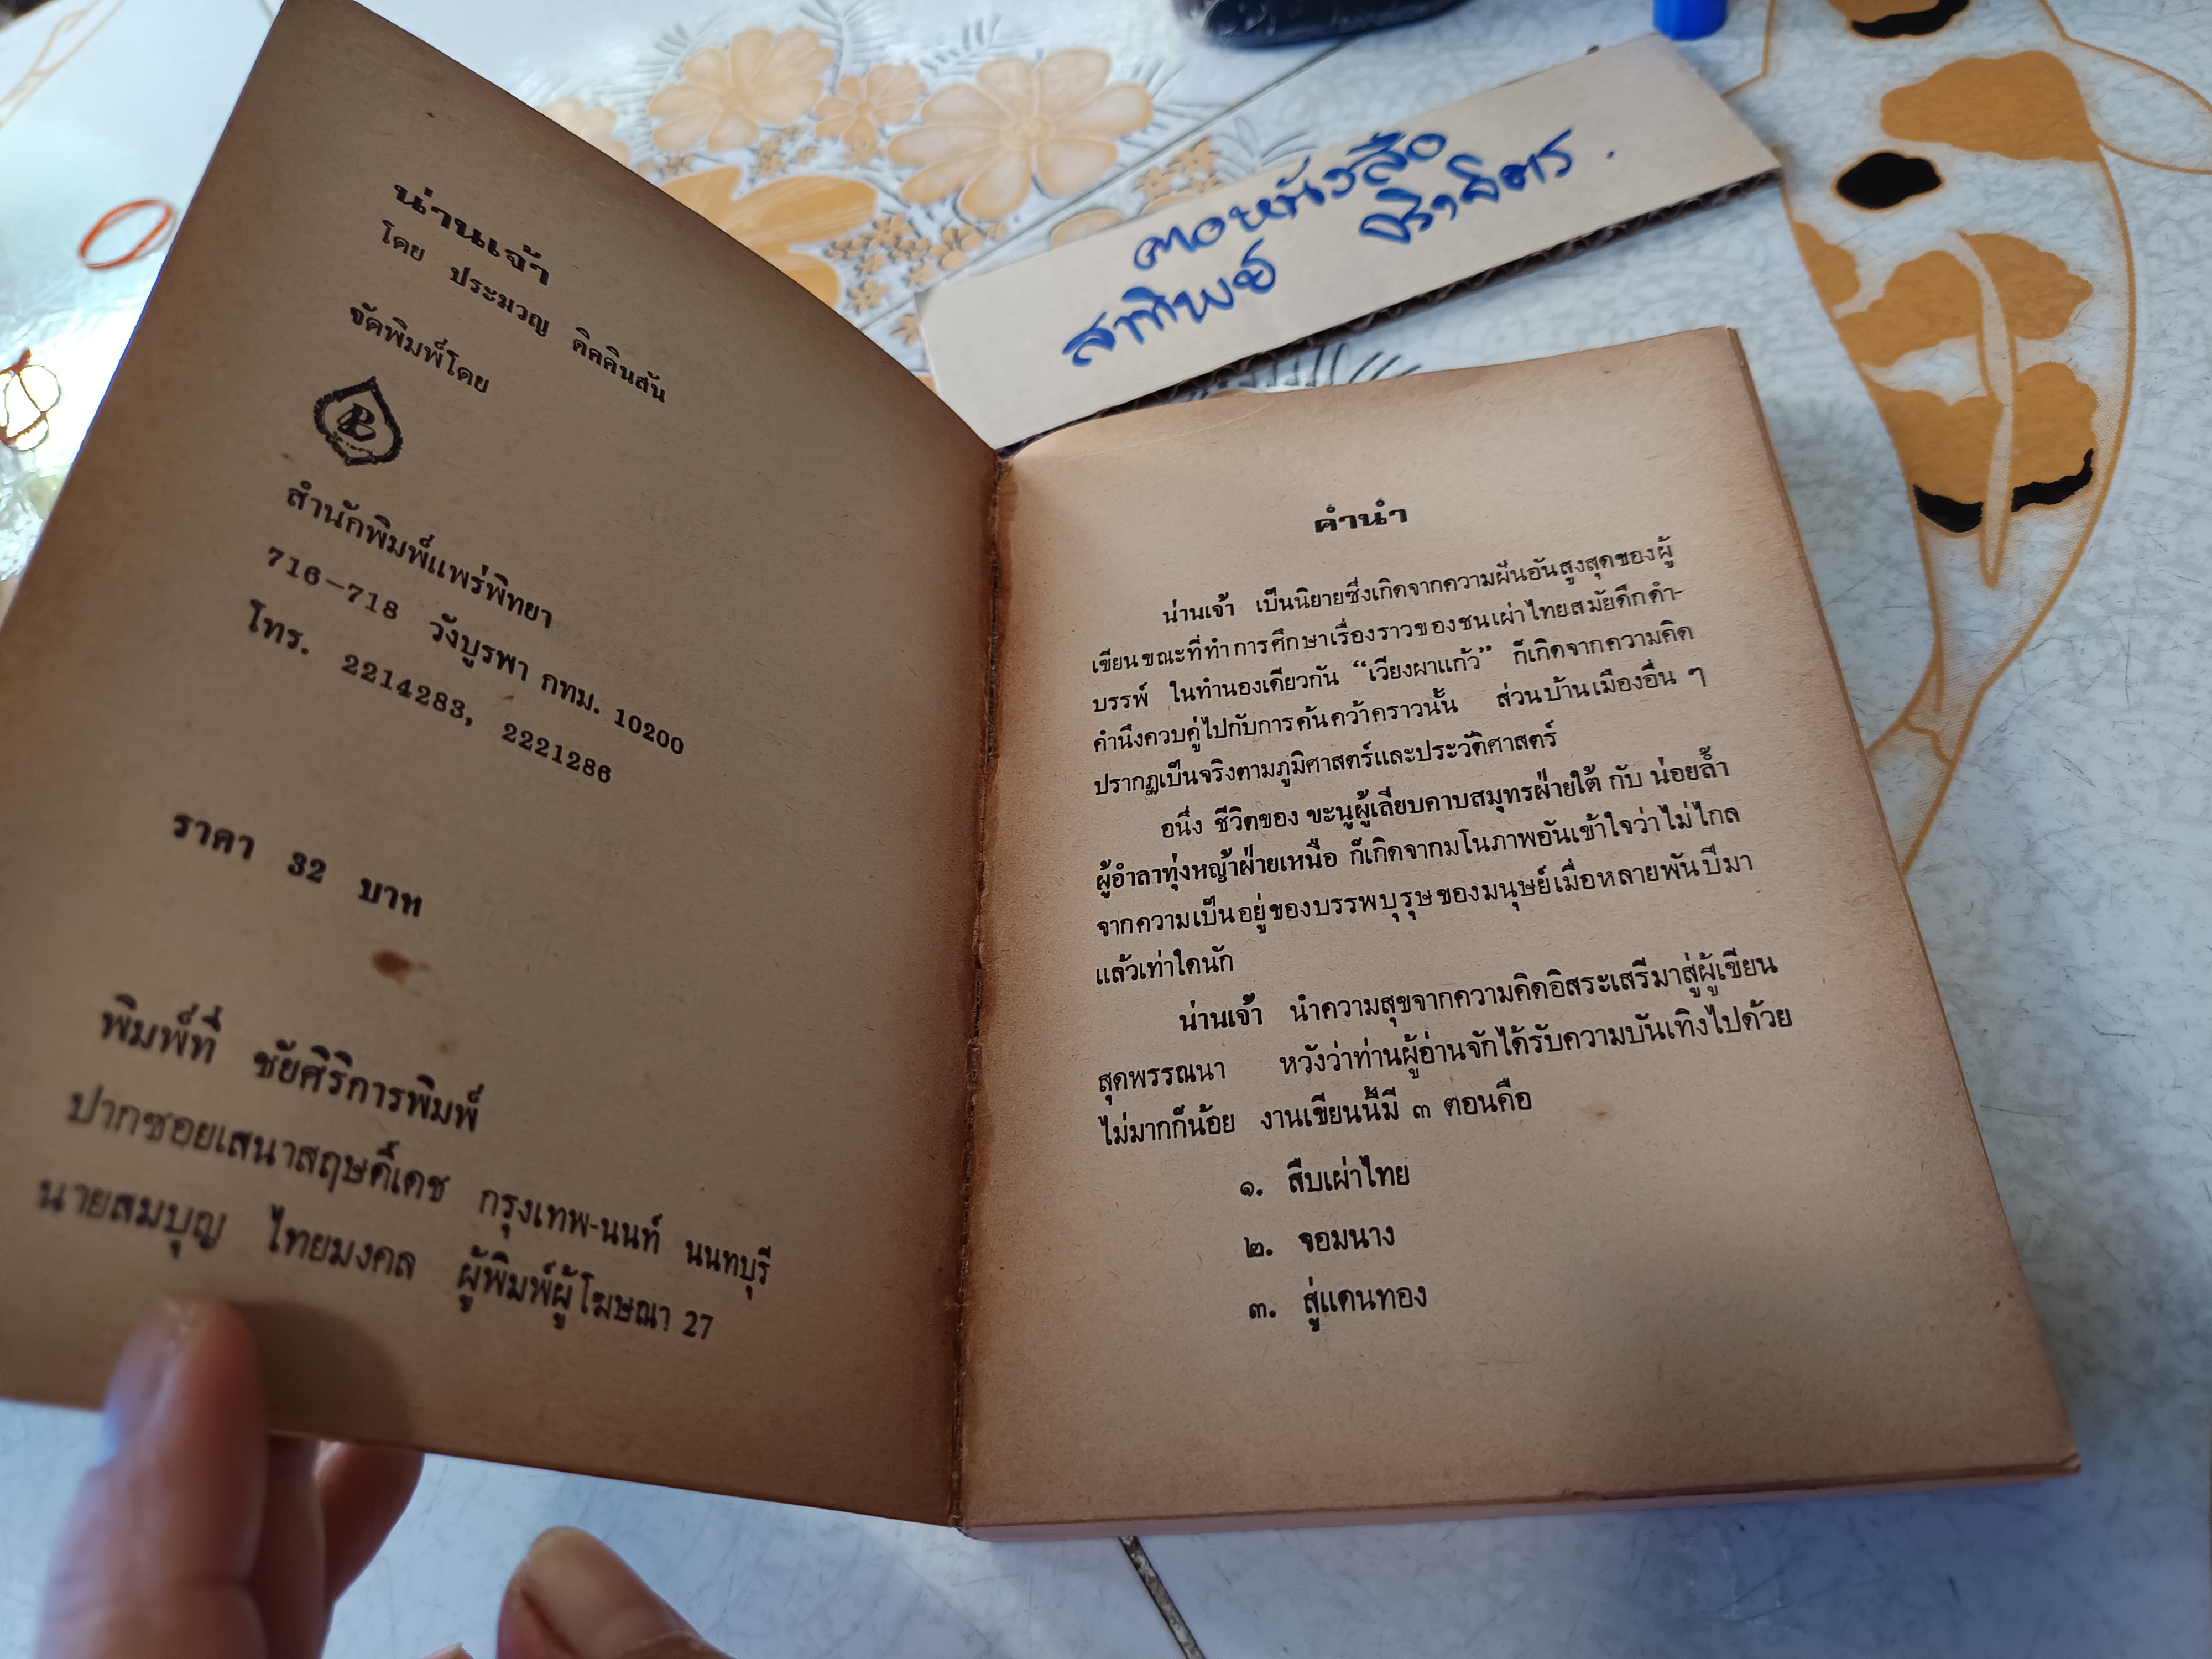 น่านเจ้า
โดย ประมวญ ดิคคินสัน
จัดพิมพ์โดย
สำนักพิมพ์แพร่พิทยา
716-718 วังบูรพา กทม. 10200
โทร. 2214283, 2221286
ราคา 32 บาท
พิมพ์ที่ ชัยศิริการพิมพ์
ปากซอยเสนาสฤษดิ์เดช กรุงเทพ-นนท์ นนทบุรี
นายสมบุญ ไทยมงคล ผู้พิมพ์ผู้โฆษณา 27
คำนำ
น่านเจ้า เป็นนิยายซึ่งเกิดจากความฝันอันสูงสุดของผู้
เขียนขณะที่ทำการศึกษาเรื่องราวของชนเผ่าไทยสมัยดึกดำ-
บรรพ์ ในทำนองเดียวกัน “เวียงผาแก้ว” ก็เกิดจากความคิด
คำนึงควบคู่ไปกับการค้นคว้าคราวนั้น ส่วนบ้านเมืองอื่น ๆ
ปรากฏเป็นจริงตามภูมิศาสตร์และประวัติศาสตร์
อนึ่ง ชีวิตของ ขะนูผู้เลียบคาบสมุทรฝ่ายใต้ กับ น่อยล้ำ
ผู้อำลาทุ่งหญ้าฝ่ายเหนือ ก็เกิดจากมโนภาพอันเข้าใจว่าไม่ไกล
จากความเป็นอยู่ของบรรพบุรุษของมนุษย์เมื่อหลายพันปีมา
แล้วเท่าใดนัก
น่านเจ้า นำความสุขจากความคิดอิสระเสรีมาสู่ผู้เขียน
สุดพรรณนา หวังว่าท่านผู้อ่านจักได้รับความบันเทิงไปด้วย
ไม่มากก็น้อย งานเขียนนี้มี ๓ ตอนคือ
๑. สืบเผ่าไทย
๒. จอมนาง
๓. สู่แดนทอง
คอหนังสือ
สาทิพย์ ศิราจิตร.